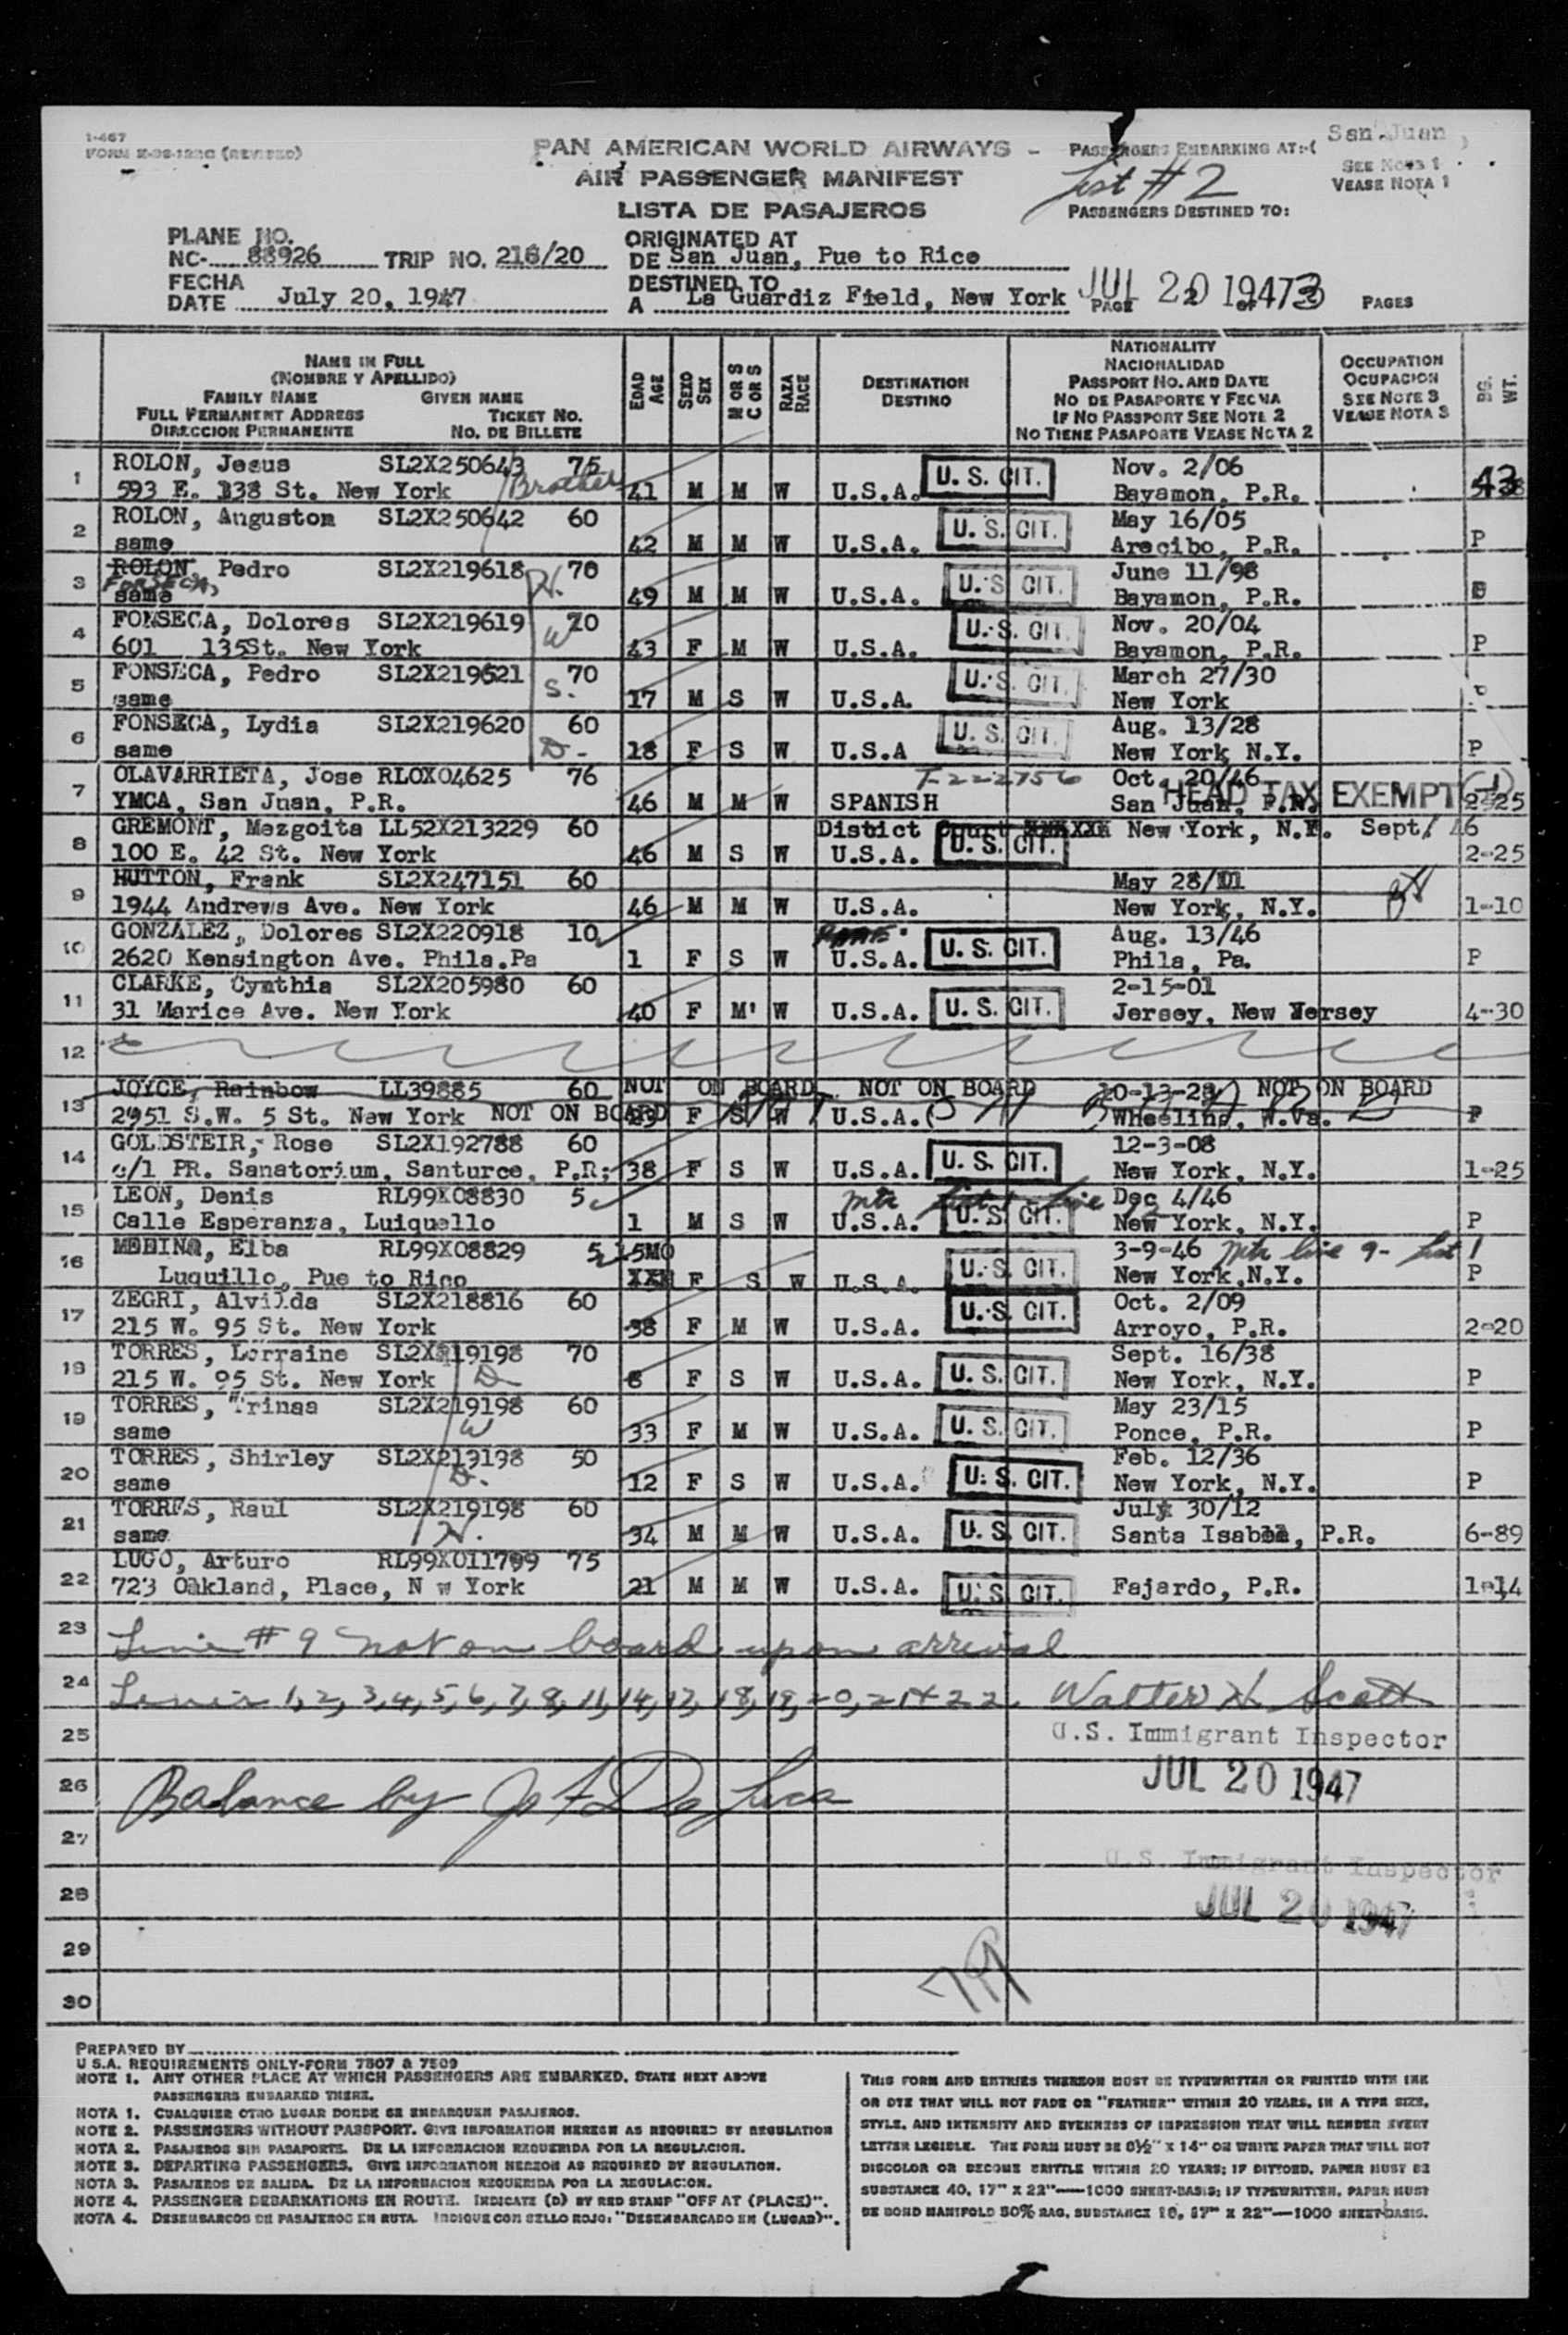 1-467
FORM (REVISED)
PAN AMERICAN WORLD AIRWAYS - PASSENGERS EMBARKING AT:-( San Juan )
AIR PASSENGER MANIFEST
SEE NOTE 1
VEASE NOTA 1
List #2
LISTA DE PASAJEROS
PASSENGERS DESTINED TO:
PLANE NO.
NC- 88926 TRIP NO. 216/20
ORIGINATED AT
DE San Juan, Pue to Rico
FECHA
DATE July 20, 1947
DESTINED TO
A La Guardiz Field, New York
JUL 20 1947
PAGE 2 OF 3 PAGES
NAME IN FULL
(NOMBRE Y APELLIDO)
FAMILY NAME GIVEN NAME
FULL PERMANENT ADDRESS TICKET NO.
DIRECCION PERMANENTE NO. DE BILLETE
EDAD AGE
SEXO SEX
M OR S C OR S
RAZA RACE
DESTINATION
DESTINO
NATIONALITY
NACIONALIDAD
PASSPORT NO. AND DATE
NO DE PASAPORTE Y FECHA
IF NO PASSPORT SEE NOTE 2
NO TIENE PASAPORTE VEASE NOTA 2
OCCUPATION
OCUPACION
SEE NOTE 3
VEASE NOTA 3
BG. WT.
1 ROLON, Jesus SL2X250643 75 Nov. 2/06
593 E. 138 St. New York Brother 41 M M W U.S.A. U. S. CIT. Bayamon, P.R. 43
2 ROLON, Anguston SL2X250642 60 May 16/05
same 42 M M W U.S.A. U. S. CIT. Arecibo, P.R. P
3 ROLON, Pedro SL2X219618 70 June 11/98
FONSECA,
same H. 49 M M W U.S.A. U. S. CIT. Bayamon, P.R.
4 FONSECA, Dolores SL2X219619 70 Nov. 20/04
601 135St. New York W 43 F M W U.S.A. U. S. CIT. Bayamon, P.R. P
5 FONSECA, Pedro SL2X219621 70 March 27/30
same S. 17 M S W U.S.A. U. S. CIT. New York
6 FONSECA, Lydia SL2X219620 60 Aug. 13/28
same D- 18 F S W U.S.A U. S. CIT. New York N.Y. P
7 OLAVARRIETA, Jose RLOX04625 76 T-222756 Oct. 20/46
YMCA, San Juan, P.R. 46 M M W SPANISH San Juan, P.R. HEAD TAX EXEMPT (-1) 2-25
8 GREMONT, Mezgoita LL52X213229 60 District Court New York, N.Y. Sept/ 46
100 E. 42 St. New York 46 M S W U.S.A. U. S. CIT. 2-25
9 HUTTON, Frank SL2X247151 60 May 28/01
1944 Andrews Ave. New York 46 M M W U.S.A. New York, N.Y. 1-10
10 GONZALEZ, Dolores SL2X220918 10 Aug. 13/46
2620 Kensington Ave. Phila.Pa 1 F S W U.S.A. U. S. CIT. Phila, Pa. P
11 CLARKE, Cynthia SL2X205980 60 2-15-01
31 Marice Ave. New York 40 F M' W U.S.A. U. S. CIT. Jersey, New Jersey 4-30
12
13 JOYCE, Rainbow LL39885 60 NOT ON BOARD NOT ON BOARD 10-13-28 NOT ON BOARD
2951 S.W. 5 St. New York NOT ON BOARD F S W U.S.A. Wheeling, W.Va. P
14 GOLDSTEIR, Rose SL2X192788 60 12-3-08
c/l PR. Sanatorium, Santurce, P.R; 38 F S W U.S.A. U. S. CIT. New York, N.Y. 1-25
15 LEON, Denis RL99X08830 5 Dec 4/46
Calle Esperanza, Luiquello 1 M S W U.S.A. U. S. CIT. New York, N.Y. P
16 MEDINA, Elba RL99X08829 5 15MO 3-9-46 mtr line 9- list 1
Luquillo, Pue to Rico XXX F S W U.S.A. U. S. CIT. New York,N.Y. P
17 ZEGRI, Alvilda SL2X218816 60 Oct. 2/09
215 W. 95 St. New York 38 F M W U.S.A. U. S. CIT. Arroyo, P.R. 2-20
18 TORRES, Lorraine SL2X219198 70 Sept. 16/38
215 W. 95 St. New York D 8 F S W U.S.A. U. S. CIT. New York, N.Y. P
19 TORRES, Trinaa SL2X219198 60 May 23/15
same W 33 F M W U.S.A. U. S. CIT. Ponce, P.R. P
20 TORRES, Shirley SL2X219198 50 Feb. 12/36
same D. 12 F S W U.S.A. U. S. CIT. New York, N.Y. P
21 TORRES, Raul SL2X219198 60 July 30/12
same H. 34 M M W U.S.A. U. S. CIT. Santa Isabel, P.R. 6-89
22 LUGO, Arturo RL99X011799 75
723 Oakland, Place, N w York 21 M M W U.S.A. U. S. CIT. Fajardo, P.R. 1-14
23 Line #9 not on board upon arrival
24 Lines 1, 2, 3, 4, 5, 6, 7, 8, 11, 14, 17, 18, 19, 20, 21 + 22. Walter H. Scott
25 U.S. Immigrant Inspector
26 Balance by Jo F De Luca JUL 20 1947
27
U.S. Immigrant Inspector
28 JUL 20 1947
29
30
PREPARED BY
U.S.A. REQUIREMENTS ONLY-FORM 7507 & 7509
NOTE 1. ANY OTHER PLACE AT WHICH PASSENGERS ARE EMBARKED, STATE NEXT ABOVE
PASSENGERS EMBARKED THERE.
NOTA 1. CUALQUIER OTRO LUGAR DONDE SE EMBARQUEN PASAJEROS.
NOTE 2. PASSENGERS WITHOUT PASSPORT. GIVE INFORMATION HEREON AS REQUIRED BY REGULATION
NOTA 2. PASAJEROS SIN PASAPORTE. DE LA INFORMACION REQUERIDA POR LA REGULACION.
NOTE 3. DEPARTING PASSENGERS. GIVE INFORMATION HEREON AS REQUIRED BY REGULATION.
NOTA 3. PASAJEROS DE SALIDA. DE LA INFORMACION REQUERIDA POR LA REGULACION.
NOTE 4. PASSENGER DEBARKATIONS EN ROUTE. INDICATE (D) BY RED STAMP "OFF AT (PLACE)".
NOTA 4. DESEMBARCOS DE PASAJEROS EN RUTA. INDIQUE CON SELLO ROJO: "DESEMBARCADO EN (LUGAR)".
THIS FORM AND ENTRIES THEREON MUST BE TYPEWRITTEN OR PRINTED WITH INK
OR DYE THAT WILL NOT FADE OR "FEATHER" WITHIN 20 YEARS, IN A TYPE SIZE,
STYLE, AND INTENSITY AND EVENNESS OF IMPRESSION THAT WILL RENDER EVERY
LETTER LEGIBLE. THE FORM MUST BE 8½" X 14" ON WHITE PAPER THAT WILL NOT
DISCOLOR OR BECOME BRITTLE WITHIN 20 YEARS; IF DITTOED, PAPER MUST BE
SUBSTANCE 40, 17" X 22"—1000 SHEET-BASIS; IF TYPEWRITTEN, PAPER MUST
BE BOND MANIFOLD 50% RAG, SUBSTANCE 16, 17" X 22"—1000 SHEET-BASIS.